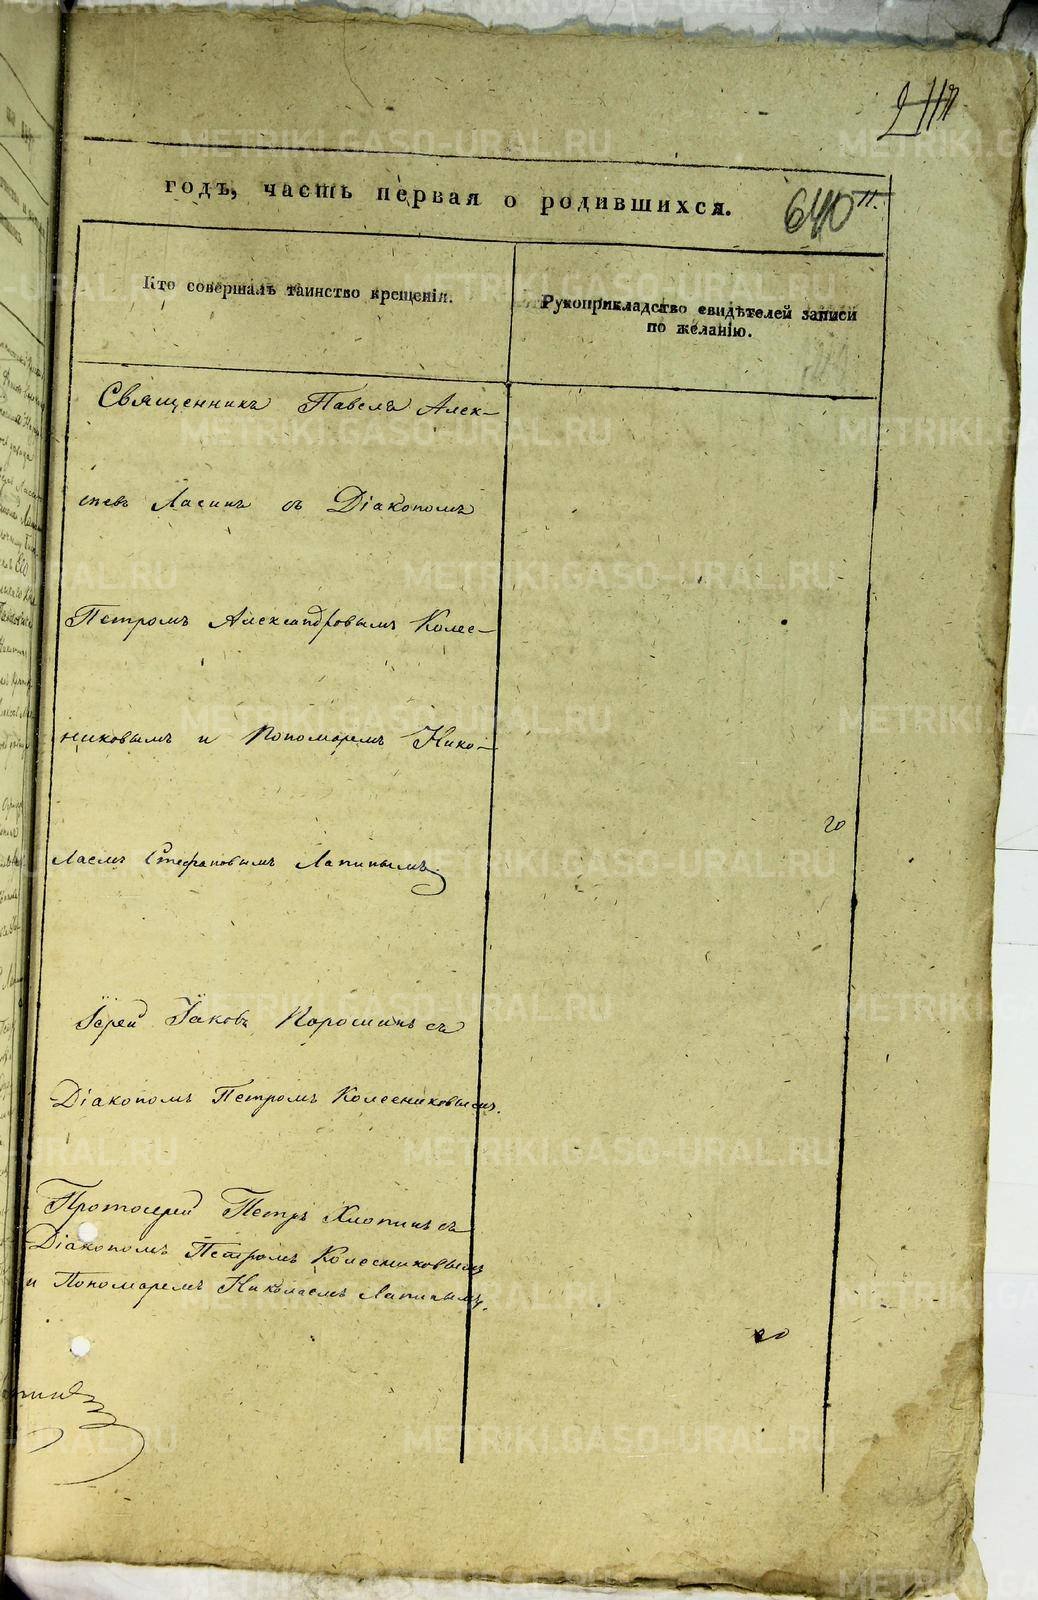 годъ, часть первая о родившихся.
640
Кто совершалъ таинство крещенія.
Рукоприкладство свидѣтелей записи
по желанію.
Священникъ Павелъ Алек-
сѣевъ Ласинъ съ Діакономъ
Петромъ Александровымъ Колес-
никовымъ и Пономаремъ Нико-
лаемъ Стефановымъ Лапинымъ.
Іерей Іаковъ Порошинъ съ
Діакономъ Петромъ Колесниковымъ.
Протоіерей Петръ Хлопинъ съ
Діакономъ Петромъ Колесниковымъ
и Пономаремъ Николаемъ Лапинымъ.
METRIKI.GASO-URAL.RU